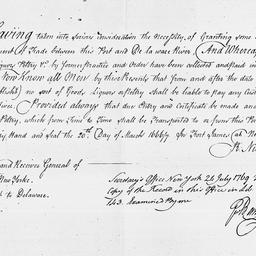 Having taken into Serious Consideration the Necessity of Granting some
of Trade between this Port and Delaware River. And Whereas
by former Practice and Order have been collected and paid in
Now Know all Men by these Presents that from and after the date
no sort of Goods Liquors or Peltry shall be liable to pay any Cus
Provided always that due Entry and Certificate be made and
which from Time to Time shall be transported to or from this Po
Hand and Seal the 20th Day of March 1666/7 in Fort James
R. N
and Receiver General of
New Yorke.
to Delaware.
Secretary's Office New York 26 July 1769
Copy of the Record in this Office in Lib.
Examined by me